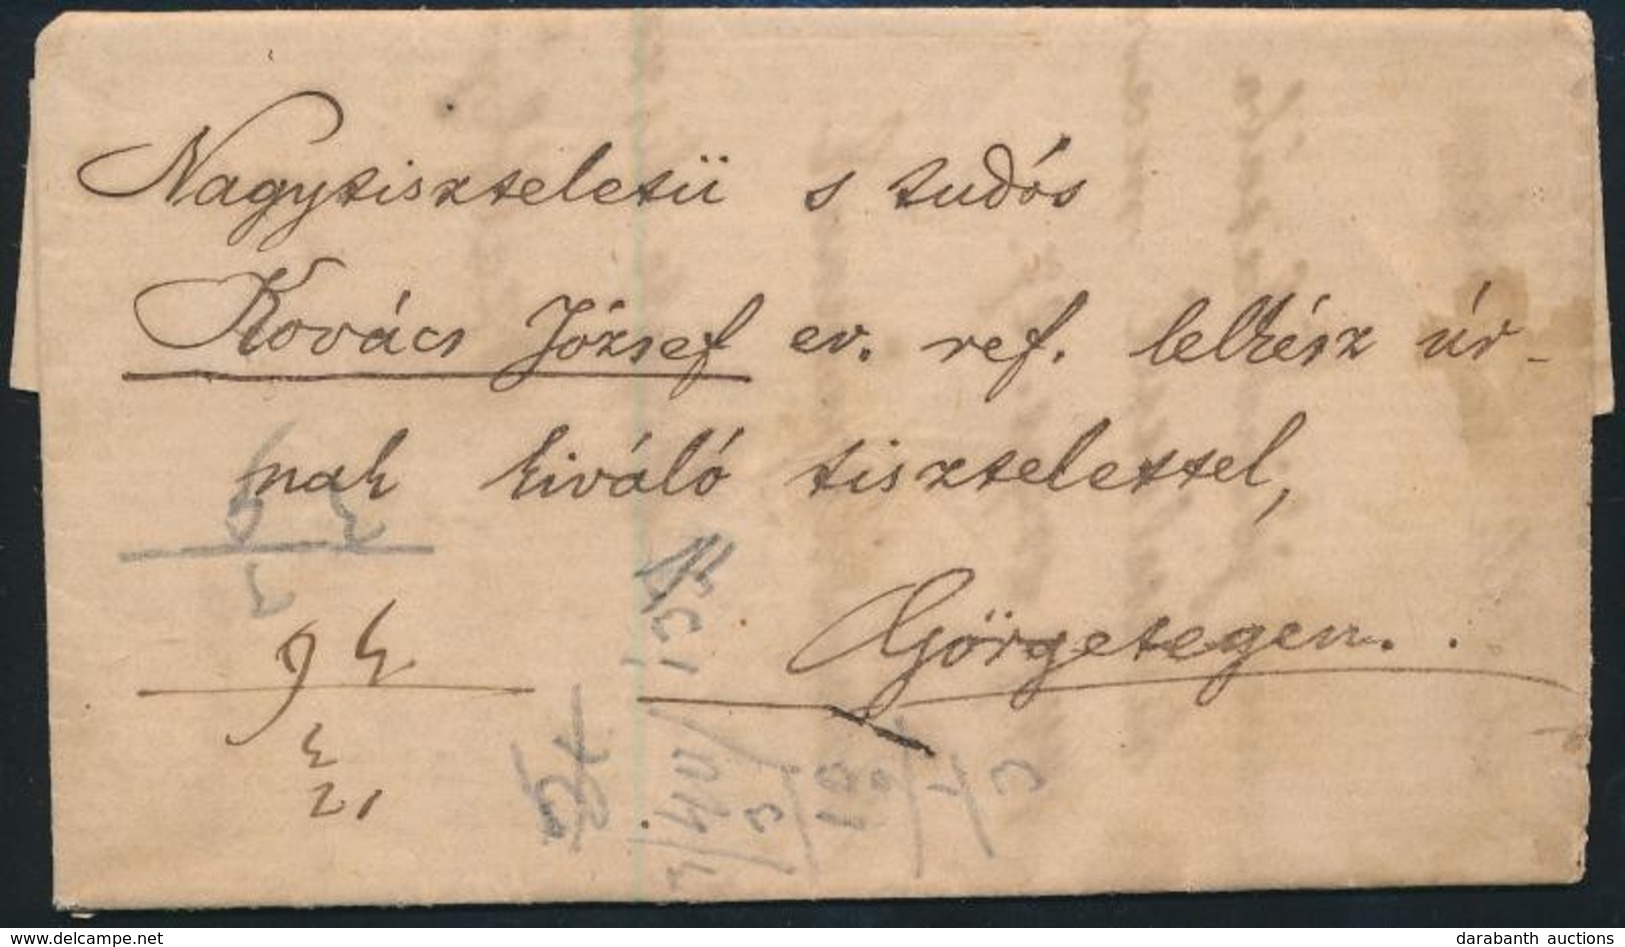 Nagytiszteletü s tudós
Kovács József ev. ref. lelkész úr-
nak kiváló tisztelettel,
Görgetegen.
delcampe.net
darabanth auctions